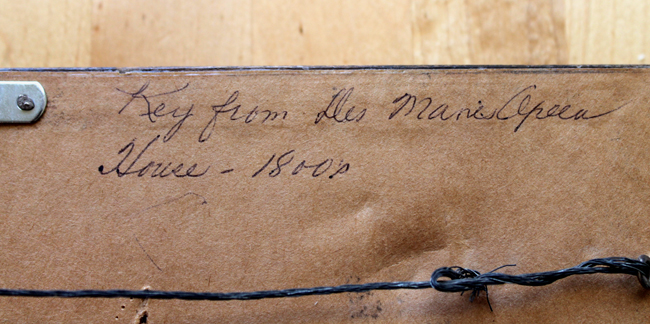 Key from Des Manes Opera
House - 1800s